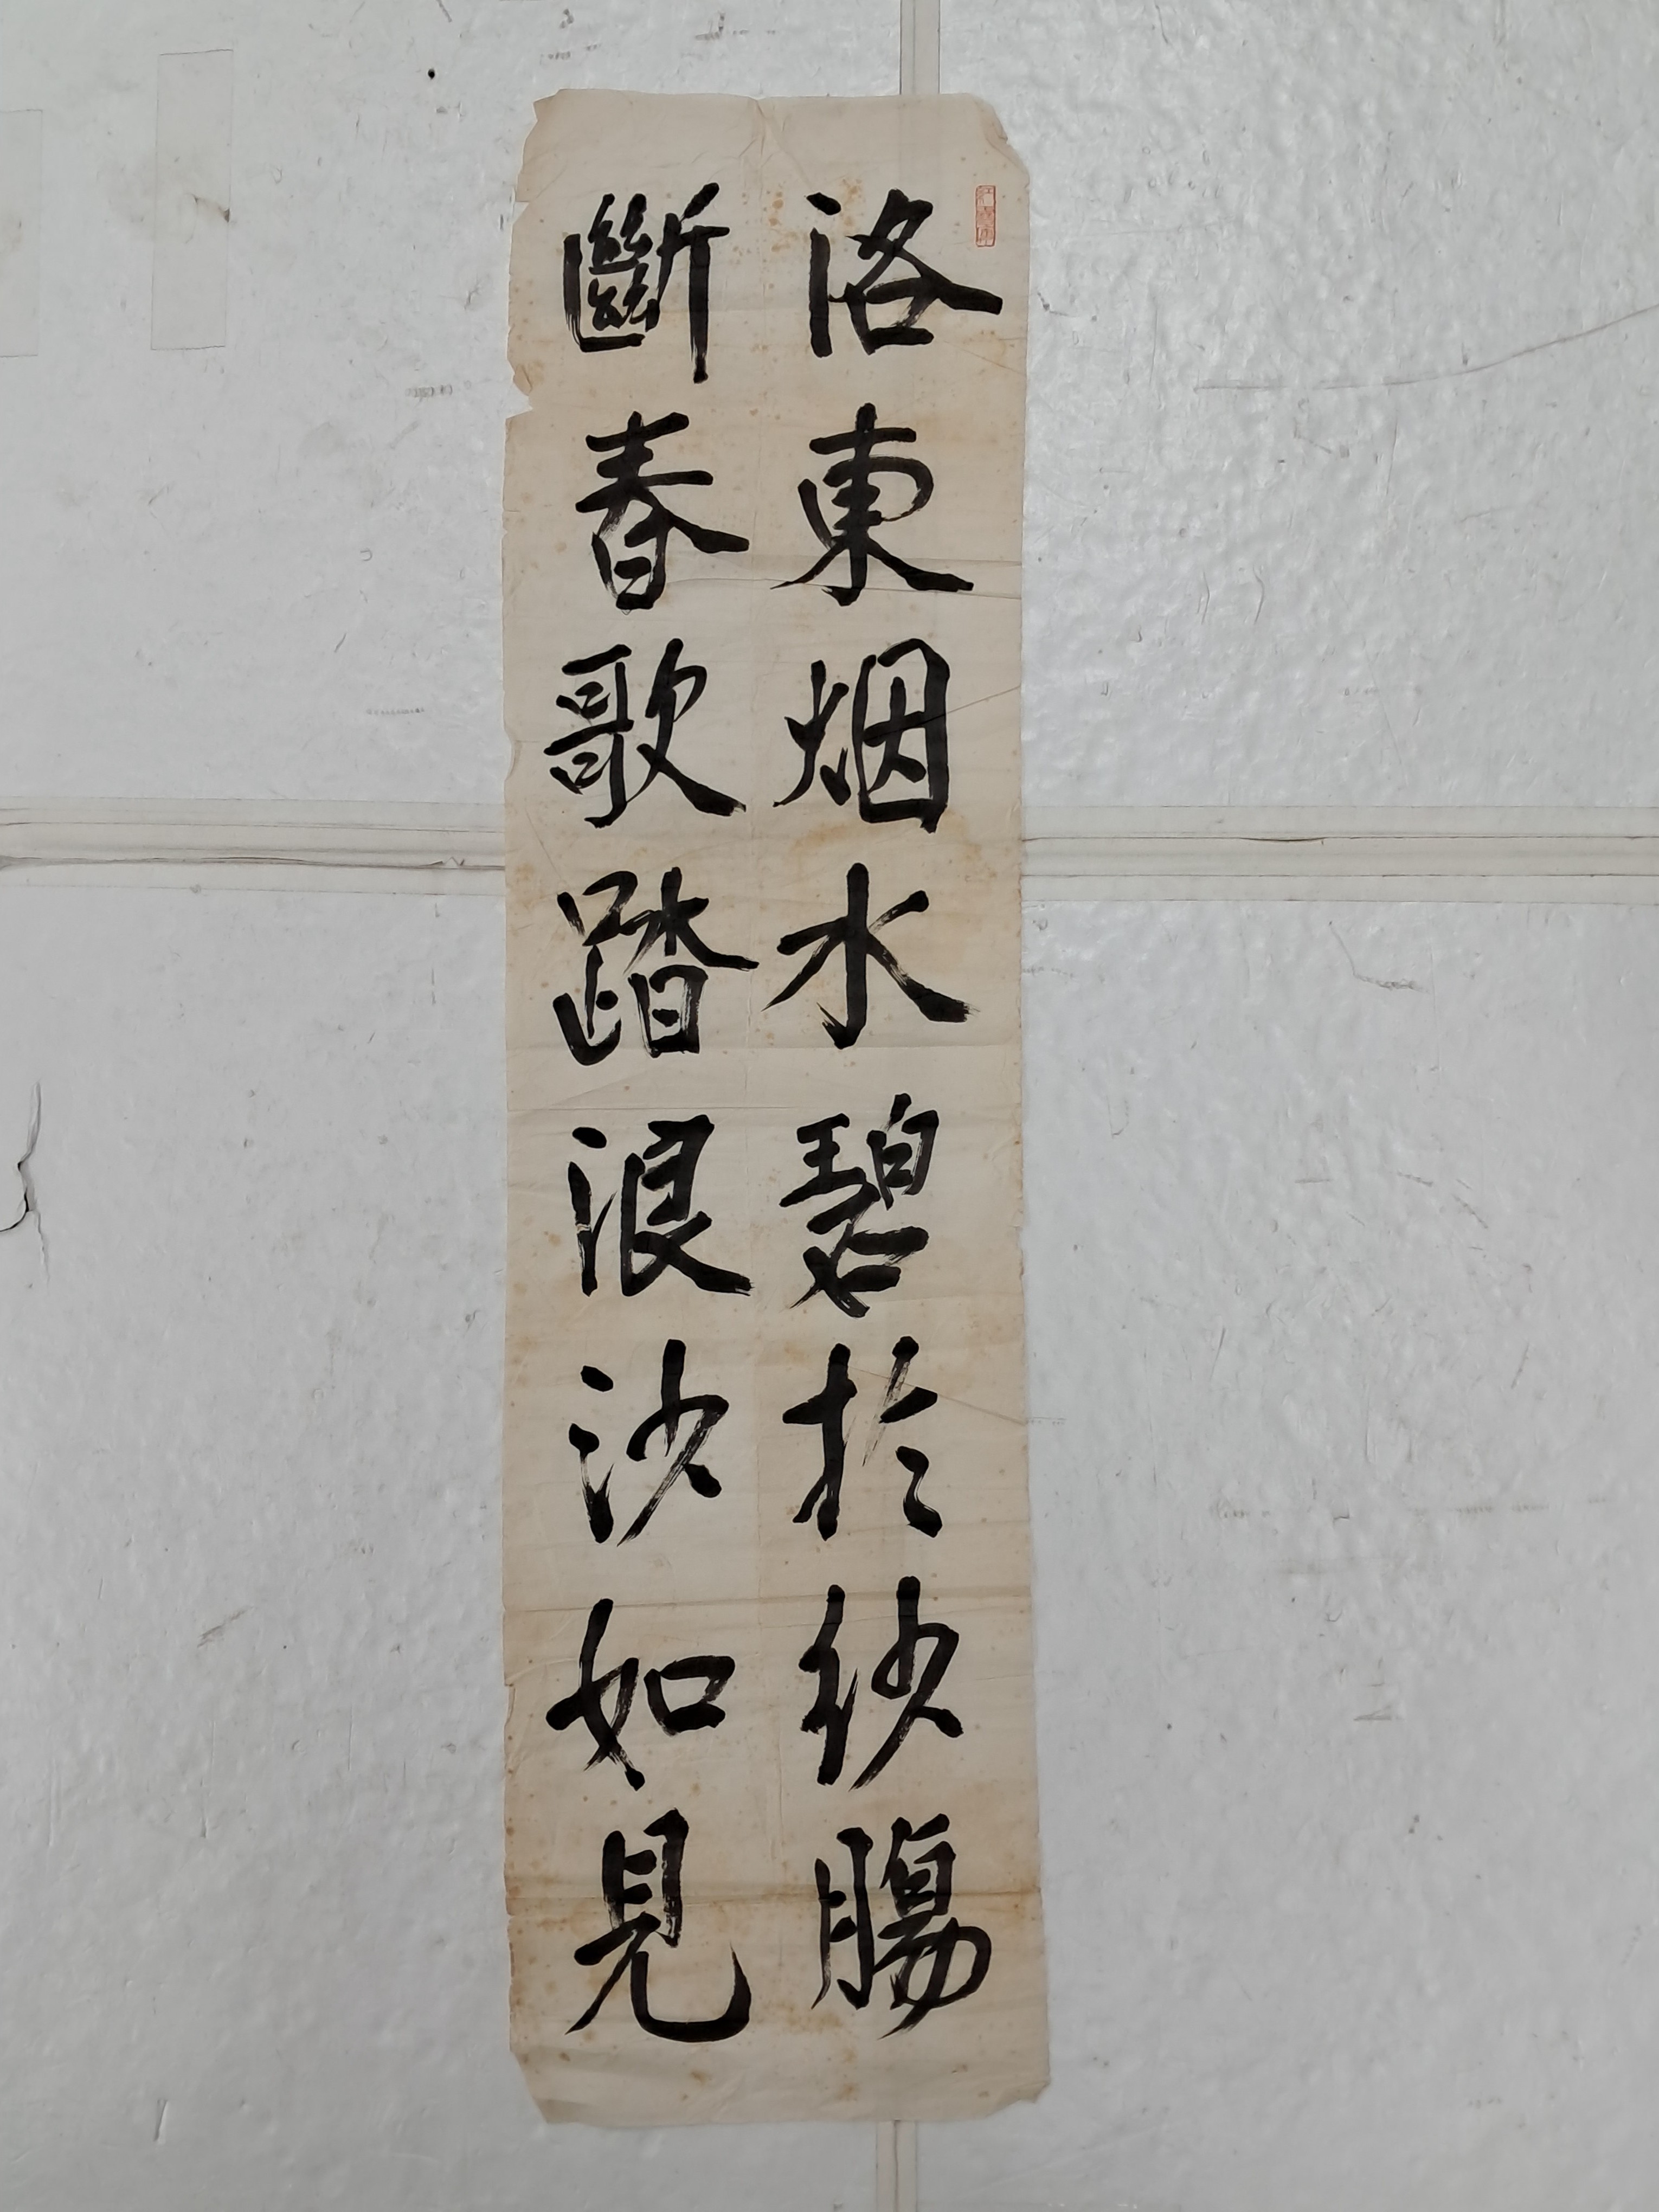 洛東烟水碧於紗腸
斷春歌踏浪沙如見